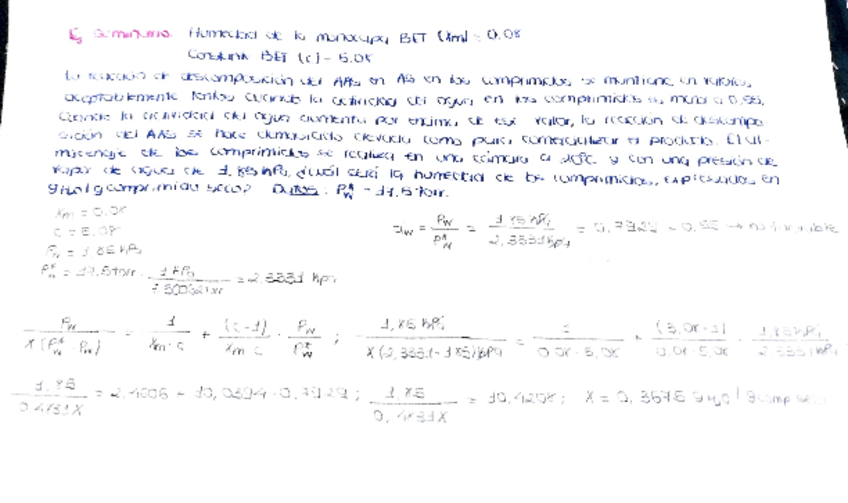 Seminario. Humedad de la monocapa BET (Xm) = 0,08
Constante BET (c) = 5,08
La reacción de descomposición del AAs en AS en los comprimidos se mantiene en valores
aceptablemente lentos cuando la actividad del agua en los comprimidos es menor a 0,55,
Cuando la actividad del agua aumenta por encima de ese valor, la reacción de descompo
sición del AAs se hace demasiado elevada como para comercializar el producto. El al-
macenaje de los comprimidos se realiza en una cámara a 20ºC y con una presión de
vapor de agua de 1,85 hPa, ¿cuál será la humedad de los comprimidos, expresados en
g H2O/g comprimido seco? Datos: P*w = 17,5 torr.
Xm = 0,08
c = 5,08
Pw = 1,85 kPa
P*w = 17,5 torr · 1 kPa / 7,50062 torr = 2,3331 kPa
aw = Pw / P*w = 1,85 kPa / 2,3331 kPa = 0,7929 > 0,55 →
Pw / X(P*w - Pw) = 1 / Xm·c + (c-1) / Xm·c · Pw / P*w ; 1,85 kPa / X(2,3331-1,85) kPa = 1 / 0,08·5,08 + (5,08-1) / 0,08·5,08 · 1,85 kPa / 2,3331 kPa
1,85 / 0,4831X = 2,4606 + 10,0394 · 0,7929 ; 1,85 / 0,4831X = 10,4208 ; X = 0,3675 g H2O / g comp seco